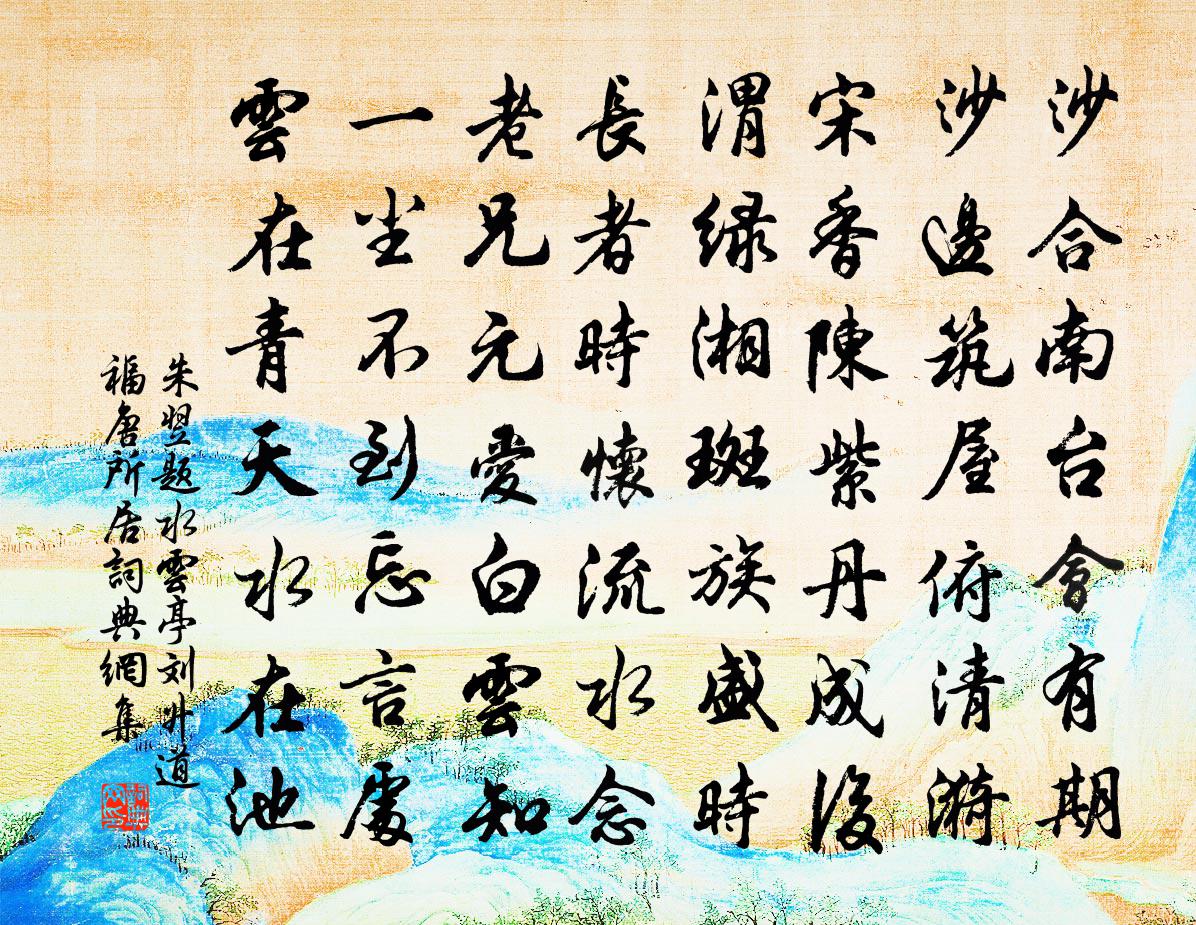 沙合南台會有期
沙邊筑屋俯清漪
宋香陳紫丹成後
渭緑湘斑族盛時
長者時懷流水念
老兄元愛白雲知
一坐不到忘言處
雲在青天水在池
朱翌題水雲亭刘升道
福唐所居詞典網集